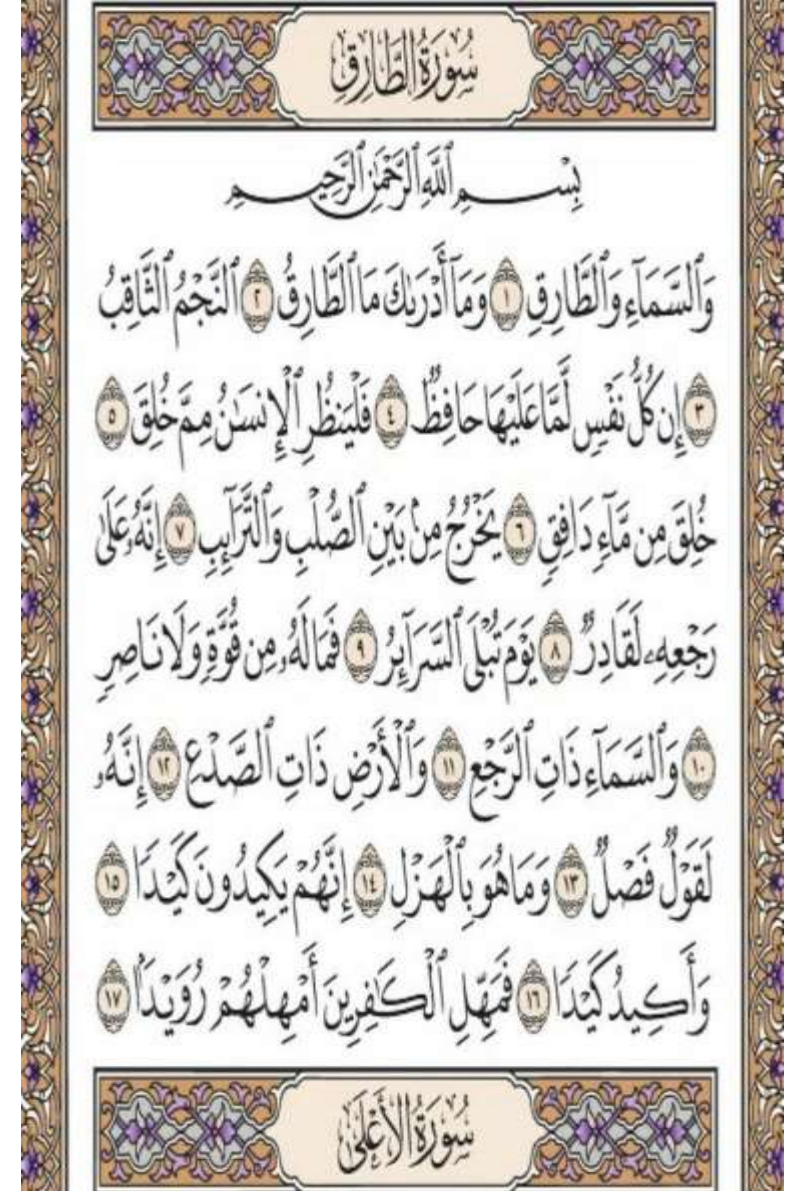 سُورَةُ الطَّارِقِ
بِسْمِ ٱللَّهِ ٱلرَّحْمَٰنِ ٱلرَّحِيمِ
وَٱلسَّمَآءِ وَٱلطَّارِقِ ١ وَمَآ أَدْرَىٰكَ مَا ٱلطَّارِقُ ٢ ٱلنَّجْمُ ٱلثَّاقِبُ
٣ إِن كُلُّ نَفْسٍ لَّمَّا عَلَيْهَا حَافِظٌ ٤ فَلْيَنظُرِ ٱلْإِنسَٰنُ مِمَّ خُلِقَ ٥
خُلِقَ مِن مَّآءٍ دَافِقٍ ٦ يَخْرُجُ مِنۢ بَيْنِ ٱلصُّلْبِ وَٱلتَّرَآئِبِ ٧ إِنَّهُۥ عَلَىٰ
رَجْعِهِۦ لَقَادِرٌ ٨ يَوْمَ تُبْلَى ٱلسَّرَآئِرُ ٩ فَمَا لَهُۥ مِن قُوَّةٍ وَلَا نَاصِرٍ
١٠ وَٱلسَّمَآءِ ذَاتِ ٱلرَّجْعِ ١١ وَٱلْأَرْضِ ذَاتِ ٱلصَّدْعِ ١٢ إِنَّهُۥ
لَقَوْلٌ فَصْلٌ ١٣ وَمَا هُوَ بِٱلْهَزْلِ ١٤ إِنَّهُمْ يَكِيدُونَ كَيْدًا ١٥
وَأَكِيدُ كَيْدًا ١٦ فَمَهِّلِ ٱلْكَٰفِرِينَ أَمْهِلْهُمْ رُوَيْدًۢا ١٧
سُورَةُ الأَعْلَىٰ